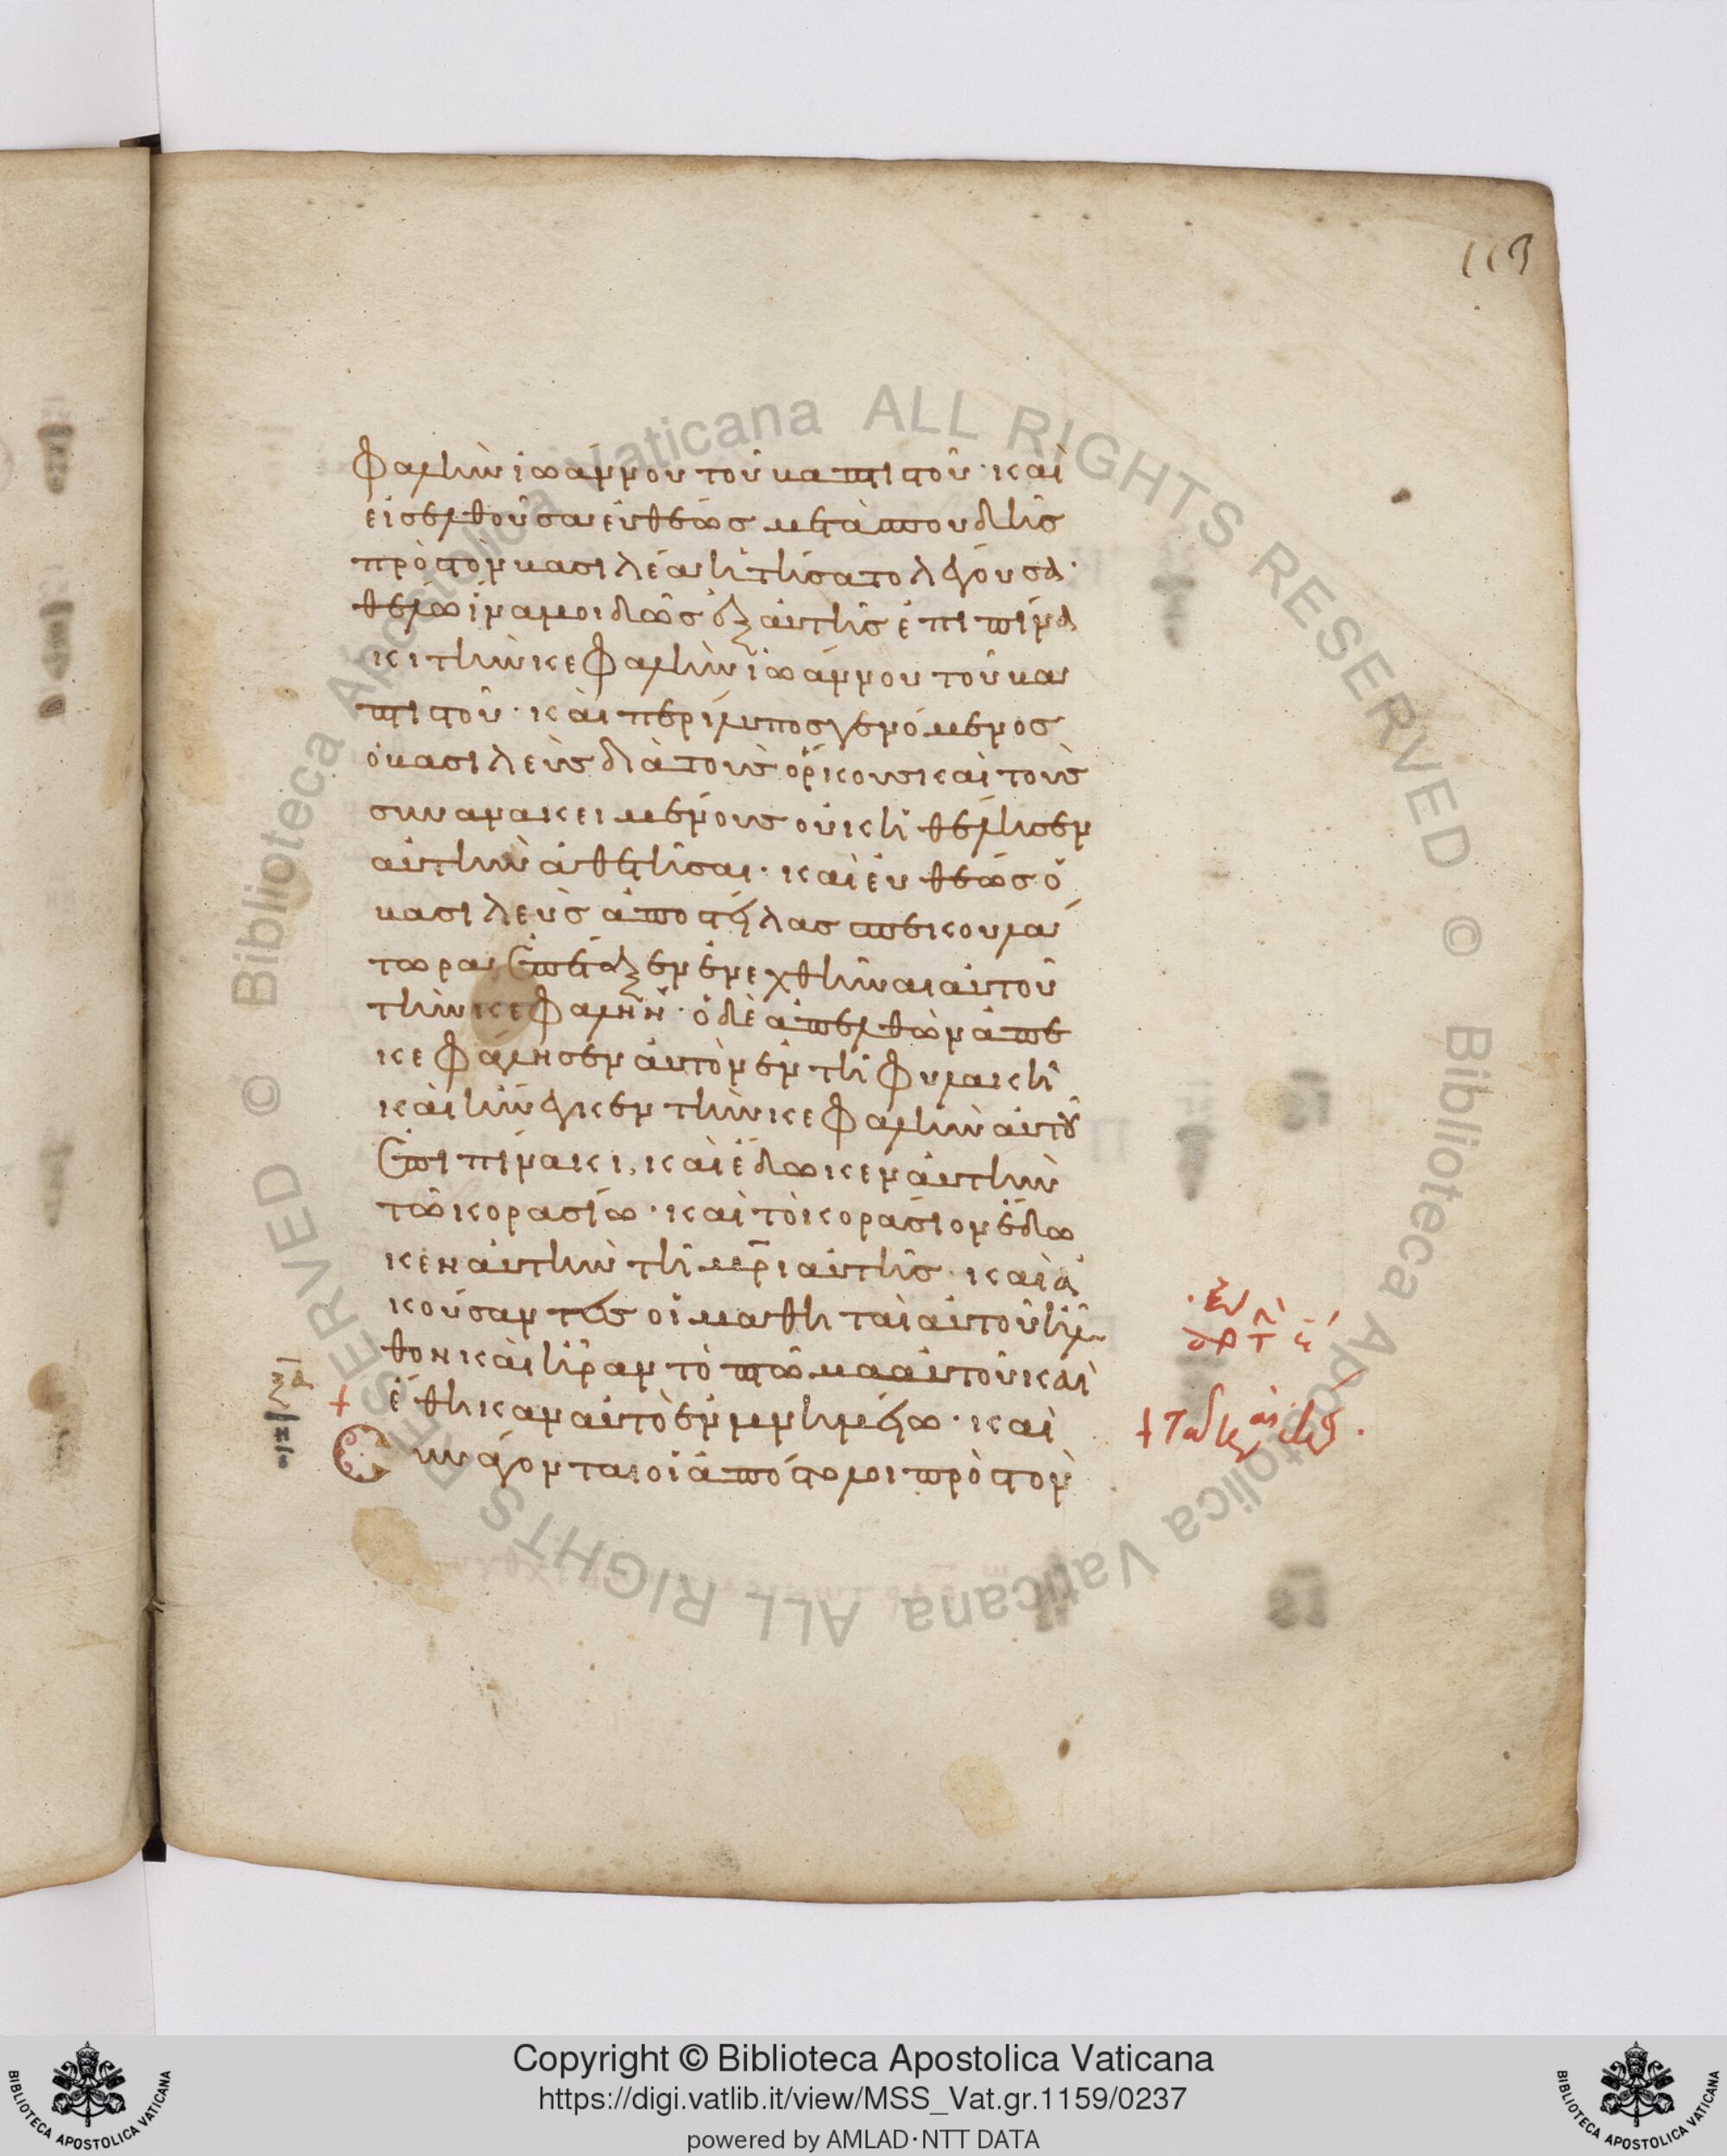 113
φαλὴν ἰωάννου τοῦ βαπτιστοῦ· καὶ
εἰσελθοῦσα εὐθέως μετὰ σπουδῆς
πρὸς τὸν βασιλέα ἠτήσατο λέγουσα·
θέλω ἵνα μοι δῶς ἐξ αὐτῆς ἐπὶ πίνα
κι τὴν κεφαλὴν ἰωάννου τοῦ βα
πτιστοῦ· καὶ περίλυπος γενόμενος
ὁ βασιλεὺς διὰ τοὺς ὅρκους καὶ τοὺς
συνανακειμένους οὐκ ἠθέλησεν
αὐτὴν ἀθετῆσαι· καὶ εὐθέως ὁ
βασιλεὺς ἀποστείλας σπεκουλά
τωρα ἐπέταξεν ἐνεχθῆναι αὐτοῦ
τὴν κεφαλήν· ὁ δὲ ἀπελθὼν ἀπε
κεφάλησεν αὐτὸν ἐν τῆ φυλακῆ
καὶ ἤνεγκεν τὴν κεφαλὴν αὐτοῦ
ἐπὶ πίνακι, καὶ ἔδωκεν αὐτὴν
τῶ κορασίω· καὶ τὸ κοράσιον ἔδω
κεν αὐτὴν τῆ μρὶ αὐτῆς· καὶ ἀ
κούσαντες οἱ μαθηταὶ αὐτοῦ ἦλ
θον καὶ ἦραν τὸ πτῶμα αὐτοῦ καὶ
+ ἔθηκαν αὐτὸ ἐν μνημείω· καὶ
Συνάγονται οἱ ἀπόστολοι πρὸς τὸν
Copyright © Biblioteca Apostolica Vaticana
https://digi.vatlib.it/view/MSS_Vat.gr.1159/0237
powered by AMLAD·NTT DATA
BIBLIOTECA APOSTOLICA VATICANA
BIBLIOTECA APOSTOLICA VATICANA
© Biblioteca Apostolica Vaticana ALL RIGHTS RESERVED © Biblioteca Apostolica Vaticana ALL RIGHTS RESERVED